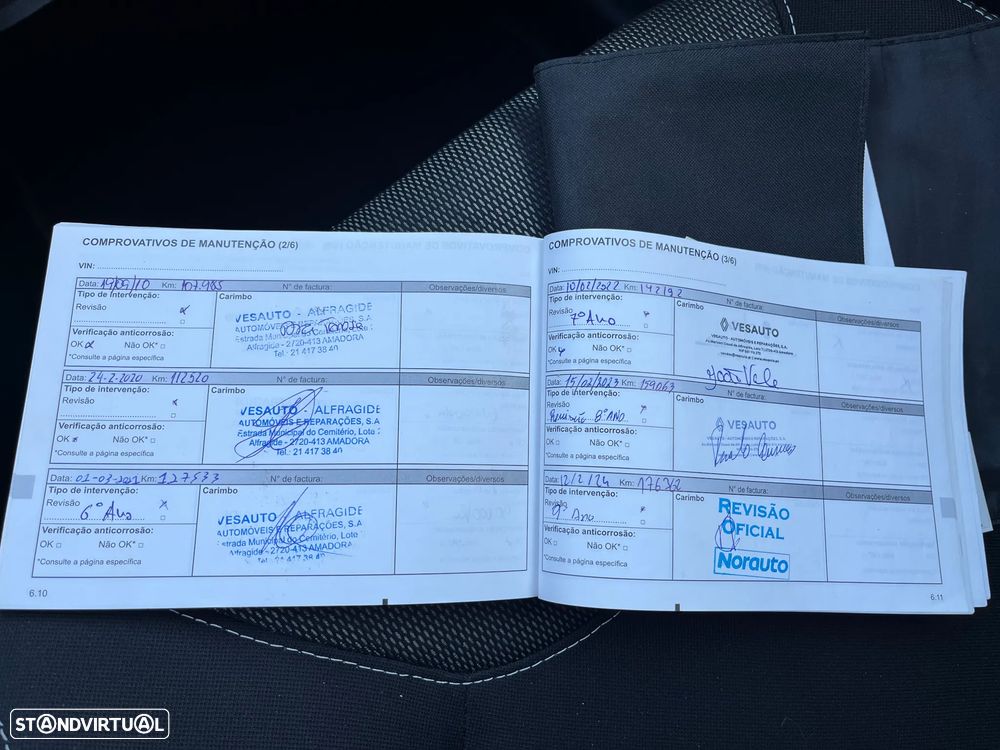 COMPROVATIVOS DE MANUTENÇÃO (2/6)
VIN:
Data: 19/09/10 Km: 107.985 N° de factura: Observações/diversos
Tipo de intervenção: Carimbo
Revisão
VESAUTO - ALFRAGIDE
AUTOMÓVEIS
Estrada Municipal do Cemitério, Lote
Alfragide - 2720-413 AMADORA
Tel.: 21 417 38 40
Verificação anticorrosão:
OK Não OK*
*Consulte a página específica
Data: 24-2-2020 Km: 112520 N° de factura: Observações/diversos
Tipo de intervenção: Carimbo
Revisão
VESAUTO - ALFRAGIDE
AUTOMÓVEIS E REPARAÇÕES, S.A
Estrada Municipal do Cemitério, Lote
Alfragide - 2720-413 AMADORA
Tel.: 21 417 38 40
Verificação anticorrosão:
OK Não OK*
*Consulte a página específica
Data: 01-03-2021 Km: 127533 N° de factura: Observações/diversos
Tipo de intervenção: Carimbo
Revisão
6º Ano
VESAUTO - ALFRAGIDE
AUTOMÓVEIS E REPARAÇÕES, S.A
Estrada Municipal do Cemitério, Lote
Alfragide - 2720-413 AMADORA
Tel. 21 417 38 40
Verificação anticorrosão:
OK Não OK*
*Consulte a página específica
6.10
COMPROVATIVOS DE MANUTENÇÃO (3/6)
VIN:
Data: 10/02/2022 Km: 142192 N° de factura: Observações/diversos
Tipo de intervenção: Carimbo
Revisão
7º Ano
VESAUTO
VESAUTO - AUTOMÓVEIS E REPARAÇÕES, S.A.
Verificação anticorrosão:
OK Não OK*
*Consulte a página específica
Data: 15/02/2023 Km: 159063 N° de factura: Observações/diversos
Tipo de intervenção: Carimbo
Revisão
Revisão 8º ANO
VESAUTO
Verificação anticorrosão:
OK Não OK*
*Consulte a página específica
Data: 12/2/24 Km: 176362 N° de factura: Observações/diversos
Tipo de intervenção: Carimbo
Revisão
9º Ano
REVISÃO
OFICIAL
Norauto
Verificação anticorrosão:
OK Não OK*
*Consulte a página específica
6.11
STANDVIRTUAL